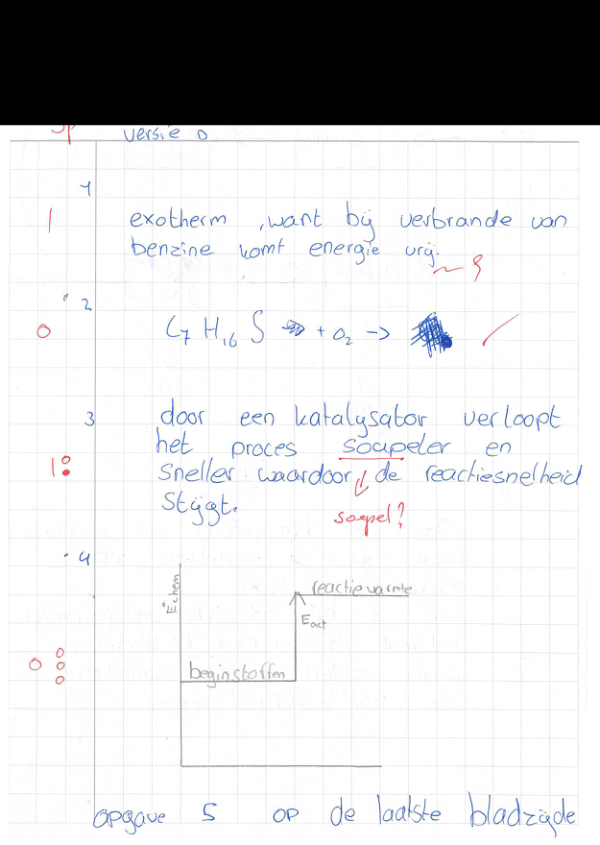 versie D
1
1 exotherm, want bij verbrande van
benzine komt energie vrij.
2
0 C7 H16 S + O2 ->
3 door een katalysator verloopt
het proces soapeler en
1 sneller waardoor de reactiesnelheid
stijgt.
soepel?
4
Echem
reactiewarmte
Eact
0 beginstoffen
opgave 5 op de laatste bladzijde